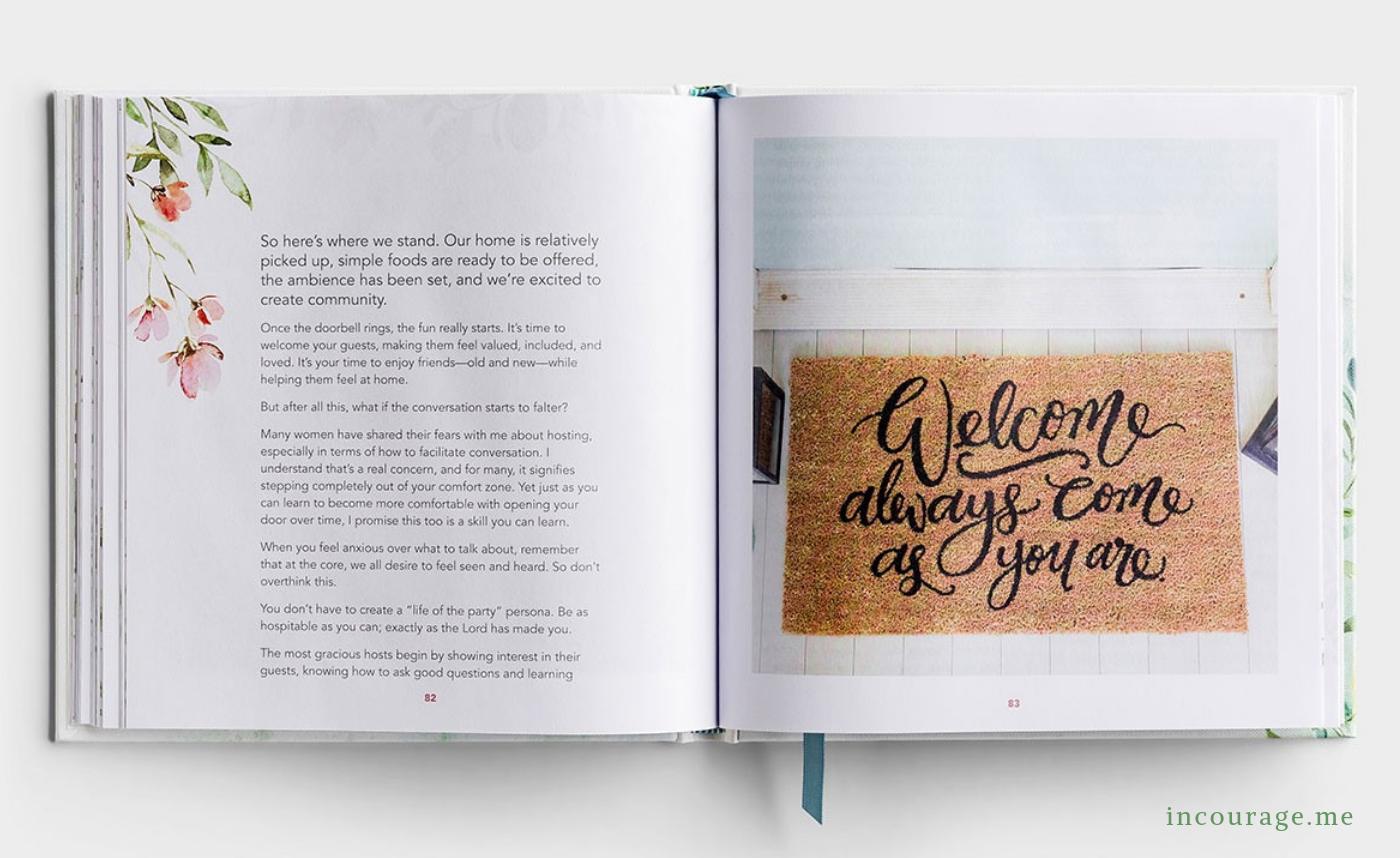 So here's where we stand. Our home is relatively
picked up, simple foods are ready to be offered,
the ambience has been set, and we're excited to
create community.
Once the doorbell rings, the fun really starts. It's time to
welcome your guests, making them feel valued, included, and
loved. It's your time to enjoy friends—old and new—while
helping them feel at home.
But after all this, what if the conversation starts to falter?
Many women have shared their fears with me about hosting,
especially in terms of how to facilitate conversation. I
understand that's a real concern, and for many, it signifies
stepping completely out of your comfort zone. Yet just as you
can learn to become more comfortable with opening your
door over time, I promise this too is a skill you can learn.
When you feel anxious over what to talk about, remember
that at the core, we all desire to feel seen and heard. So don't
overthink this.
You don't have to create a "life of the party" persona. Be as
hospitable as you can; exactly as the Lord has made you.
The most gracious hosts begin by showing interest in their
guests, knowing how to ask good questions and learning
82
Welcome
always come
as you are.
83
incourage.me